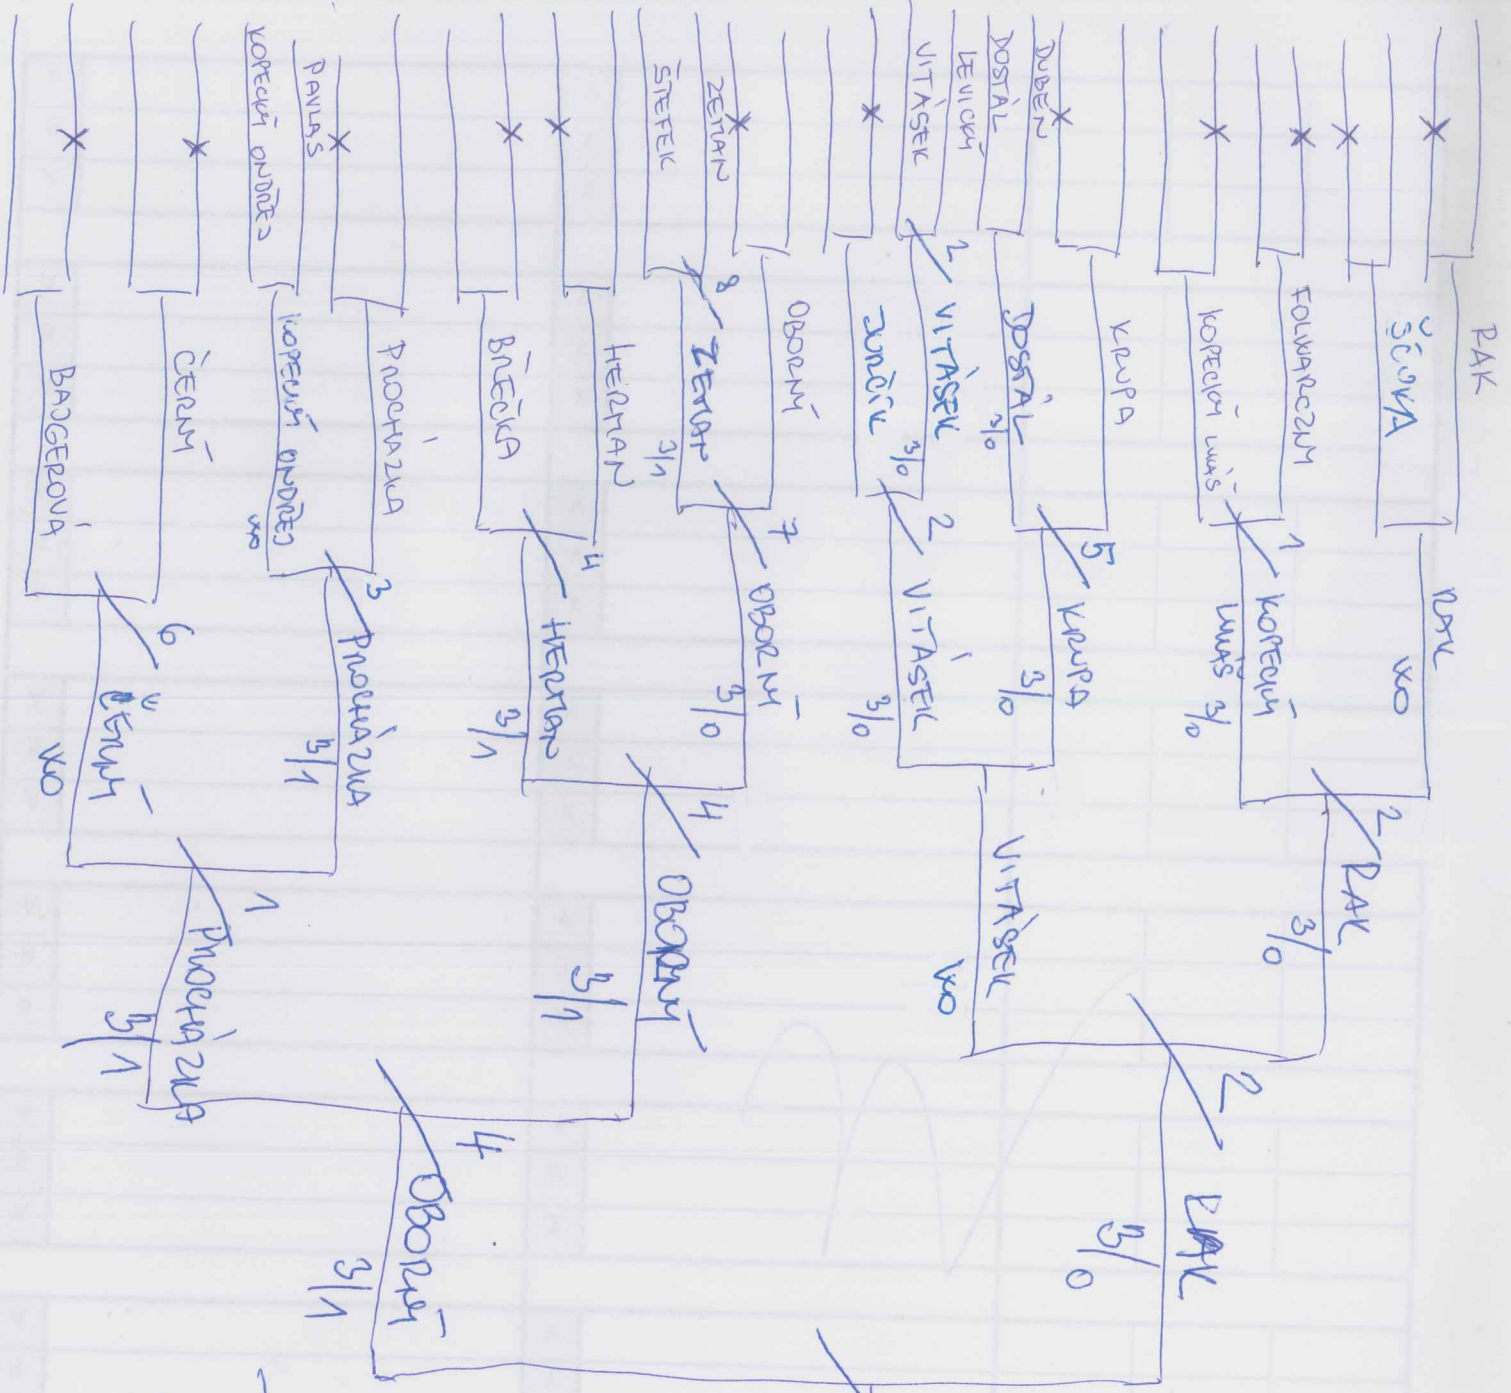 RAK
ŠČUKA
FOLWARCZNY
KOPECKÝ LUKÁŠ
KRUPA
DUBEN
DOSTÁL
LEVICKÝ
VITÁSEK
DOSTÁL
3/0
2 VITÁSEK
3/0
JURČÍK
OBORNÝ
ZEMAN
ŠTEFEK
8 ZEMAN
3/1
HERMAN
BŘEČKA
PROCHÁZKA
PAVLAS
KOPECKÝ ONDŘEJ
KOPECKÝ ONDŘEJ
WO
ČERNÝ
BAJGEROVÁ
RAK
WO
1 KOPECKÝ
LUKÁŠ 3/0
5 KRUPA
3/0
2 VITÁSEK
3/0
7 OBORNÝ
3/0
4 HERMAN
3/1
3 PROCHÁZKA
3/1
6 ČERNÝ
WO
2 RAK
3/0
VITÁSEK
WO
4 OBORNÝ
3/1
1 PROCHÁZKA
3/1
2 RAK
3/0
4 OBORNÝ
3/1